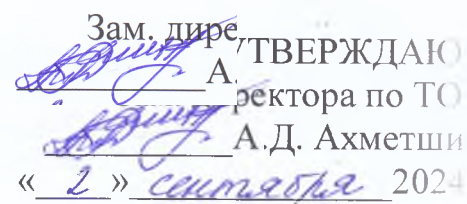 Зам. дире
ТВЕРЖДАЮ
А.
ректора по ТО
А.Д. Ахметши
« 2 » сентября 2024